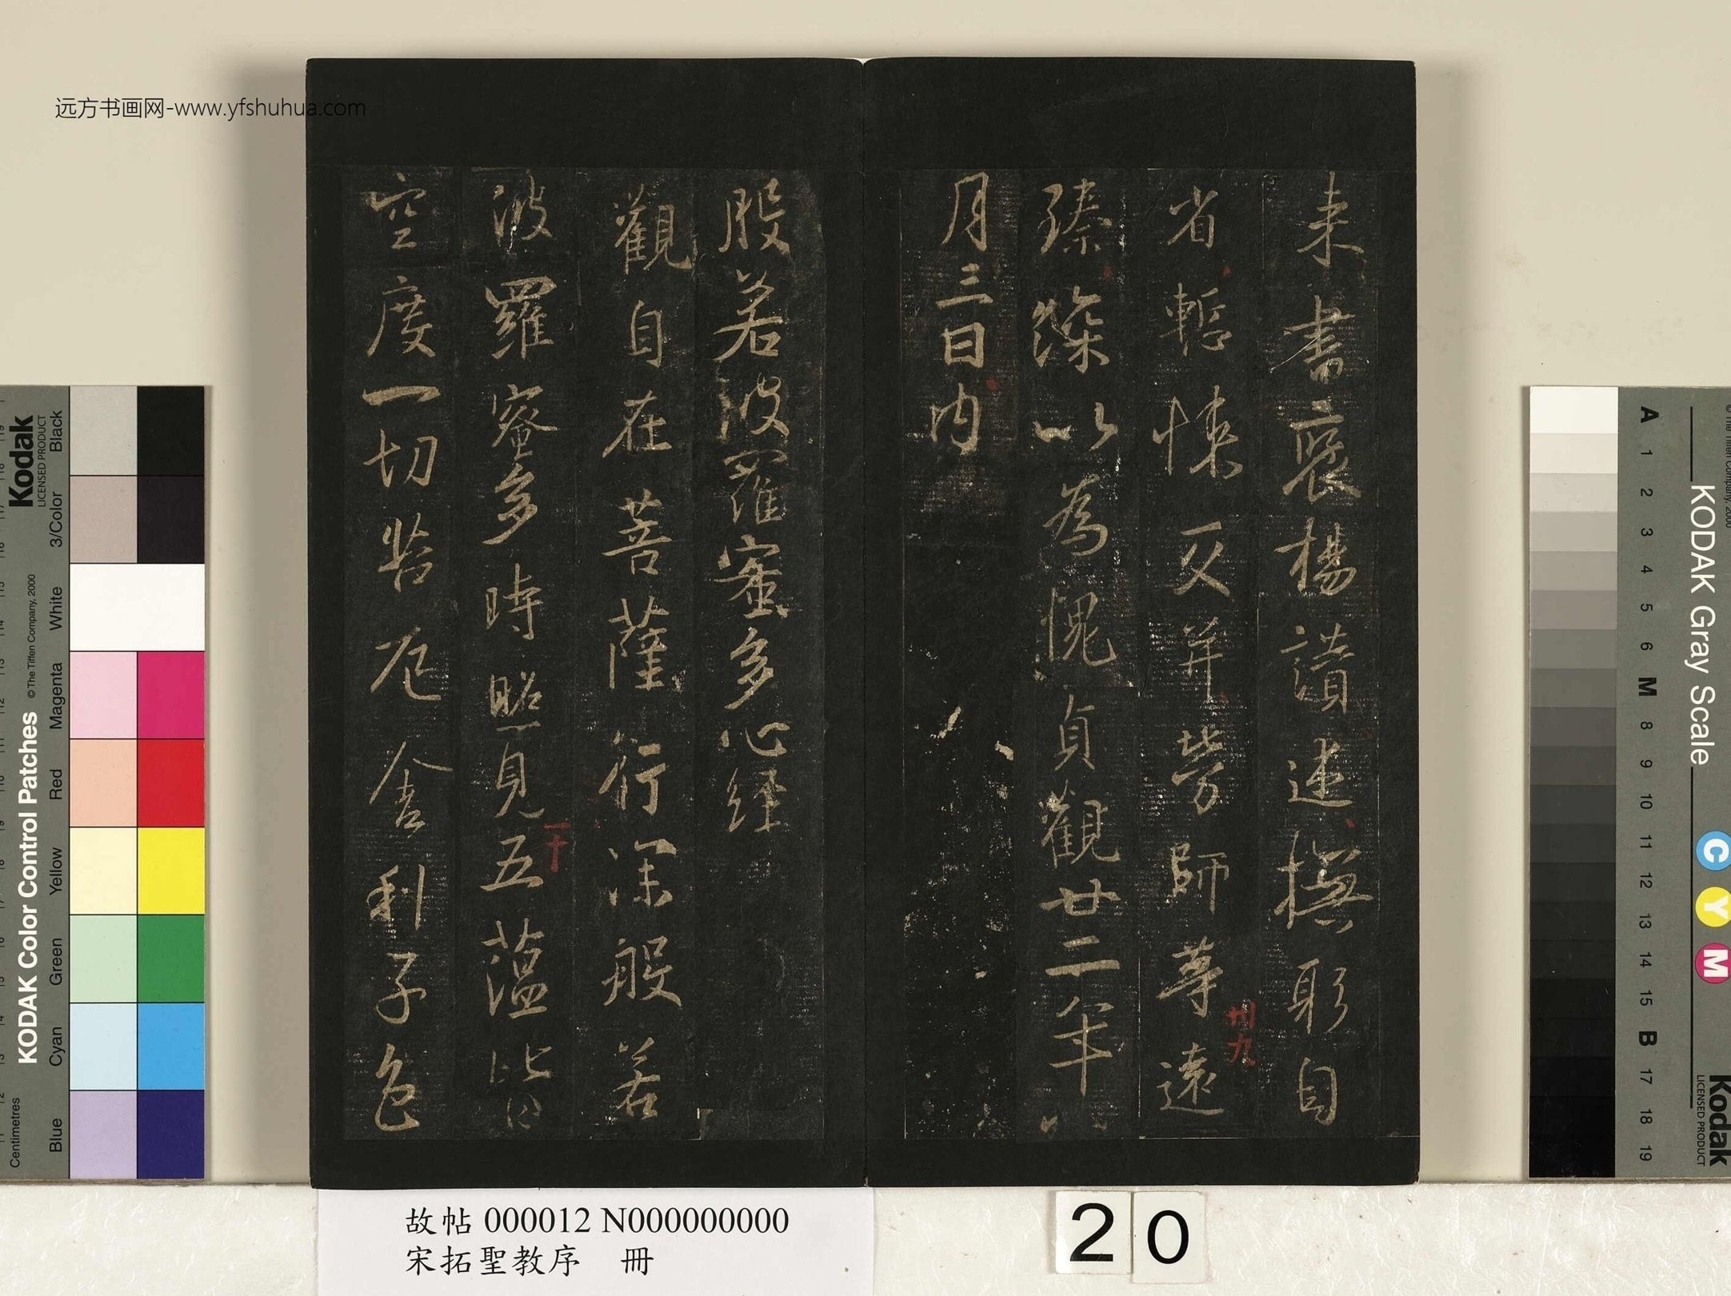 远方书画网-www.yfshuhua.com
来書褒揚讃述撫躬自
省慙悚交并勞師等遠
臻深以為愧貞觀廿二年
八
月三日内
般若波羅蜜多心經
觀自在菩薩行深般若
波羅蜜多時照見五蘊皆
空度一切苦厄舍利子色
卅九
二十
故帖 000012 N000000000
宋拓聖教序 冊
20
KODAK Color Control Patches
Kodak
LICENSED PRODUCT
© The Tiffen Company, 2000
Centimetres
Blue
Cyan
Green
Yellow
Red
Magenta
White
3/Color
Black
KODAK Gray Scale
Kodak
LICENSED PRODUCT
C
Y
M
A
1
2
3
4
5
6
M
8
9
10
11
12
13
14
15
B
17
18
19